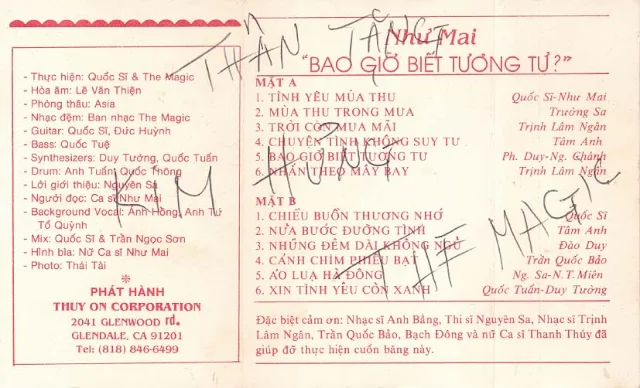 THÂN TẶNG
KIM HÙNG
THE MAGIC
- Thực hiện: Quốc Sĩ & The Magic
- Hòa âm: Lê Văn Thiện
- Phòng thâu: Asia
- Nhạc đệm: Ban nhạc The Magic
- Guitar: Quốc Sĩ, Đức Huỳnh
- Bass: Quốc Tuệ
- Synthesizers: Duy Tường, Quốc Tuấn
- Drum: Anh Tuấn, Quốc Thông
- Lời giới thiệu: Nguyên Sa
- Người đọc: Ca sĩ Như Mai
- Background Vocal: Anh Hồng, Anh Tú
Tố Quỳnh
- Mix: Quốc Sĩ & Trần Ngọc Sơn
- Hình bìa: Nữ Ca sĩ Như Mai
- Photo: Thái Tài
PHÁT HÀNH
THUY ON CORPORATION
2041 GLENWOOD rd.
GLENDALE, CA 91201
Tel: (818) 846-6499
Như Mai
"BAO GIỜ BIẾT TƯƠNG TƯ?"
MẶT A
1. TÌNH YÊU MÙA THU Quốc Sĩ-Như Mai
2. MÙA THU TRONG MƯA Trường Sa
3. TRỜI CÒN MƯA MÃI Trịnh Lâm Ngân
4. CHUYỆN TÌNH KHÔNG SUY TƯ Tâm Anh
5. BAO GIỜ BIẾT TƯƠNG TƯ Ph. Duy-Ng. Chánh
6. NHẮN THEO MÂY BAY Trịnh Lâm Ngân
MẶT B
1. CHIỀU BUỒN THƯƠNG NHỚ Quốc Sĩ
2. NỬA BƯỚC ĐƯỜNG TÌNH Tâm Anh
3. NHỮNG ĐÊM DÀI KHÔNG NGỦ Đào Duy
4. CÁNH CHIM PHIÊU BẠT Trần Quốc Bảo
5. ÁO LỤA HÀ ĐÔNG Ng. Sa-N.T.Miên
6. XIN TÌNH YÊU CÒN XANH Quốc Tuấn-Duy Tường
Đặc biệt cảm ơn: Nhạc sĩ Anh Bằng, Thi sĩ Nguyên Sa, Nhạc sĩ Trịnh
Lâm Ngân, Trần Quốc Bảo, Bạch Đông và nữ Ca sĩ Thanh Thúy đã
giúp đỡ thực hiện cuốn băng này.